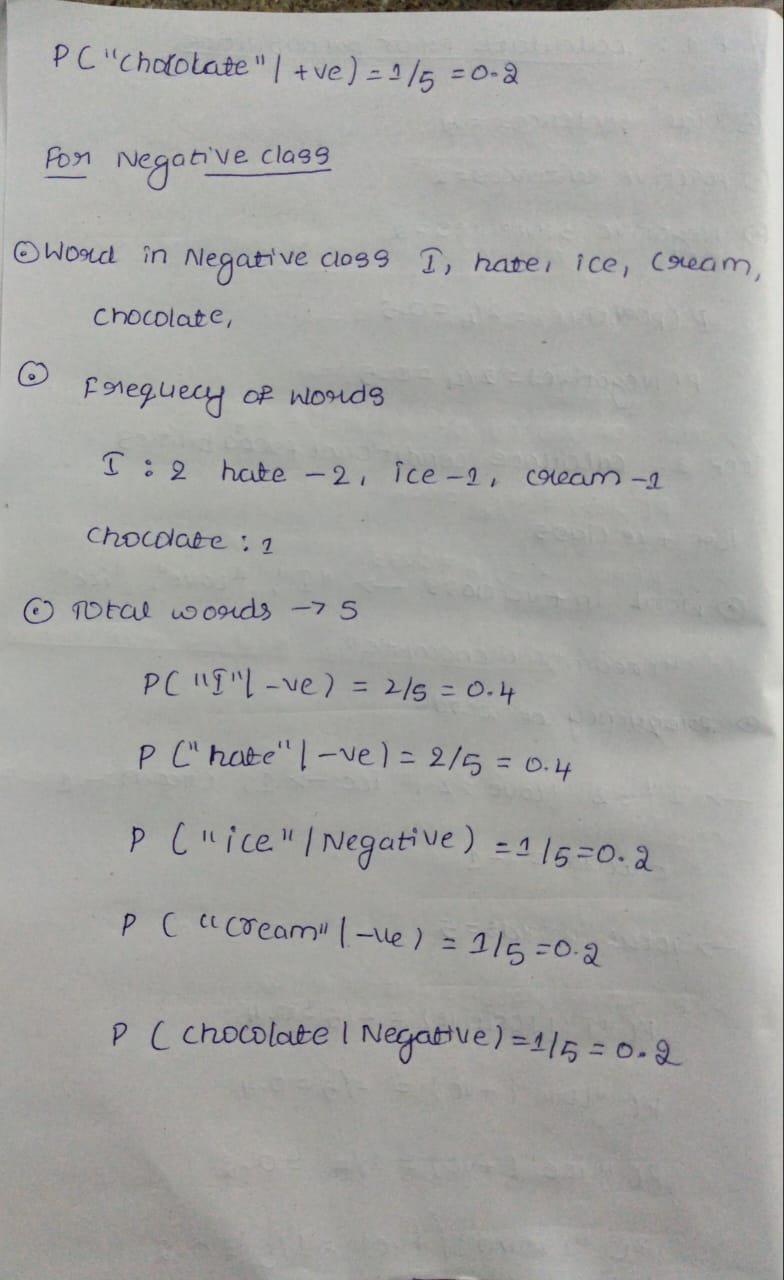 P("chocolate" | +ve) = 1/5 = 0.2
For Negative class
⊙ Word in Negative class I, hate, ice, cream,
chocolate,
⊙ Frequecy of words
I : 2 hate - 2, ice - 1, cream - 1
chocolate : 1
⊙ Total words → 5
P("I" | -ve) = 2/5 = 0.4
P("hate" | -ve) = 2/5 = 0.4
P("ice" | Negative) = 1/5 = 0.2
P("cream" | -ve) = 1/5 = 0.2
P(chocolate | Negative) = 1/5 = 0.2